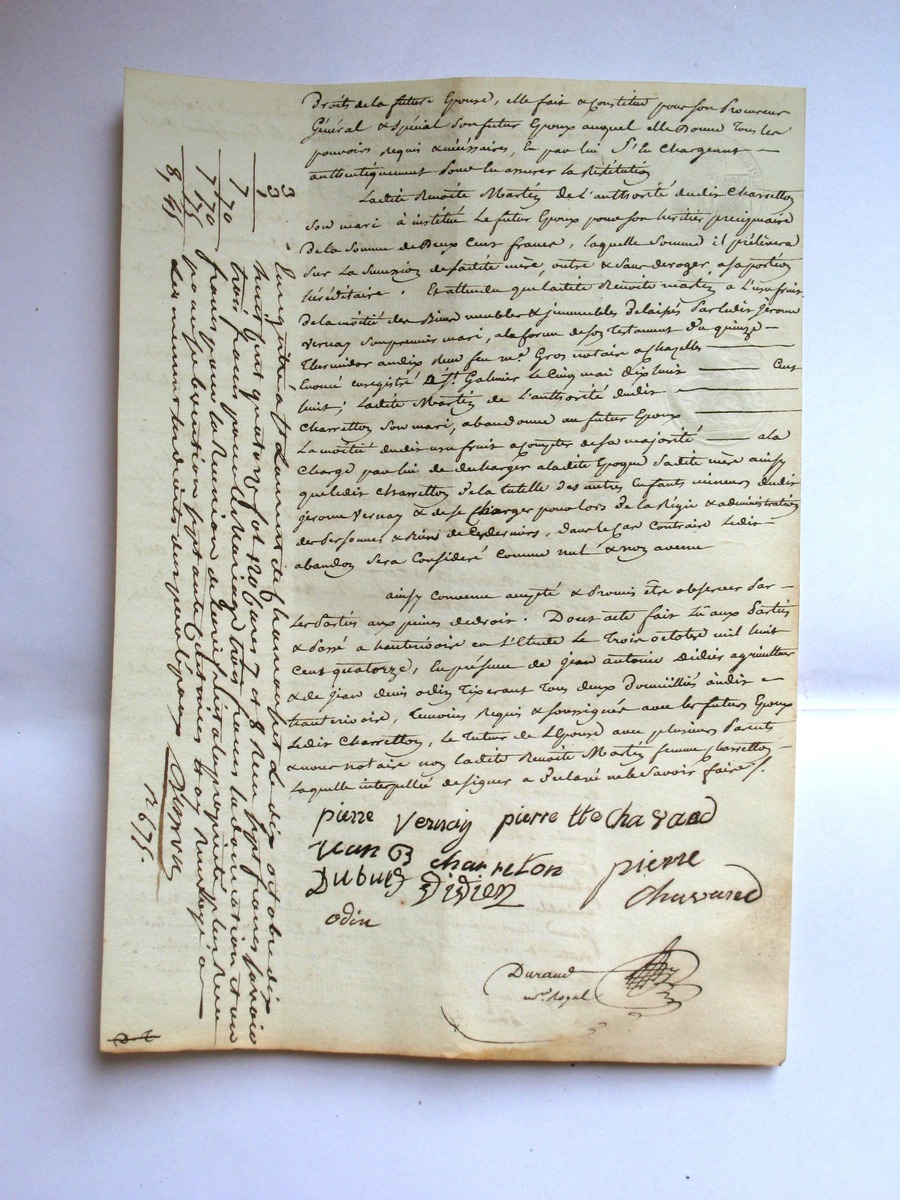 Droits de la future Epouse, elle fait & Constitue pour son Procureur
Général & spécial son futur Epoux auquel elle Donne Tous les
pouvoirs requis & nécéssaires, en par lui S'en Chargeant —
authentiquement Pour en assurer la Restitution
Ladite Benoite Martin de l'authorité dudit Charretton
Son mari à institué Le futur Epoux pour son héritier preciputaire
De la Somme de Deux Cent francs, laquelle Somme il prélèvera
Sur La Succession de ladite mère, outre & Sans deroger, a sa portion
héréditaire. Et attendu que ladite Benoite Martin a L'usufruit
De la moitié des Biens meubles & immeubles délaissés Par ledit Jérome
Vernay Son premier mari, a la forme de son Testament Du quinze —
Thermidor an dix devant feu me. Gros notaire a Chazelles —
Enoncé enregistré à St. Galmier Le Cinq mai dix huit — Cent
huit; Ladite Martin de L'authorité dudit —
Charretton Son mari, abandonne au futur Epoux —
La moitié dudit usufruit a Compter de sa majorité — a la
Charge par lui de décharger a ladite Epoque Sadite mère ainsy
que ledit Charretton de la tutelle des autres Enfants mineurs dudit
Jérome Vernay & de se Charger pour lors de la Régie & administration
des personnes & Biens de Ces derniers, dans le Cas Contraire Ledit —
abandon Sera Consideré Comme nul & non avenu
ainsy Convenu accepté & Promis être observer Par —
Les Parties aux peines de droit. Dont acte fait Lu aux Parties
& Passé a hauterivoire en L'Etude Le Trois octobre mil huit
Cent quatorze, En présence de Jean antoine Didier agriculteur
& de Jean denis odin Tixerant Tous deux Domiciliés audit —
hauterivoire, Témoins Requis & soussignés avec les futurs Epoux
Ledit Charretton, le Tuteur de L'Epouse avec plusieurs Parents
& nous notaire non Ladite Benoite Martin femme Charretton —
Laquelle interpellée de signer a Déclaré ne le Savoir faire /.
pierre Vernay pierrette Chavand
jean B charreton pierre
Dubuis Didier Chavand
odin
Durand
no. Royal
Enregistré à St Laurent de Chamousset Le dix octobre dix
huit Cent quatorze fol 120 Cases 7 et 8 Reçu
trois francs pour le Mariage trois francs la donation et un
franc pour
pour subvention
3
3
1
7
70
7 70
8, 45
n° 675.